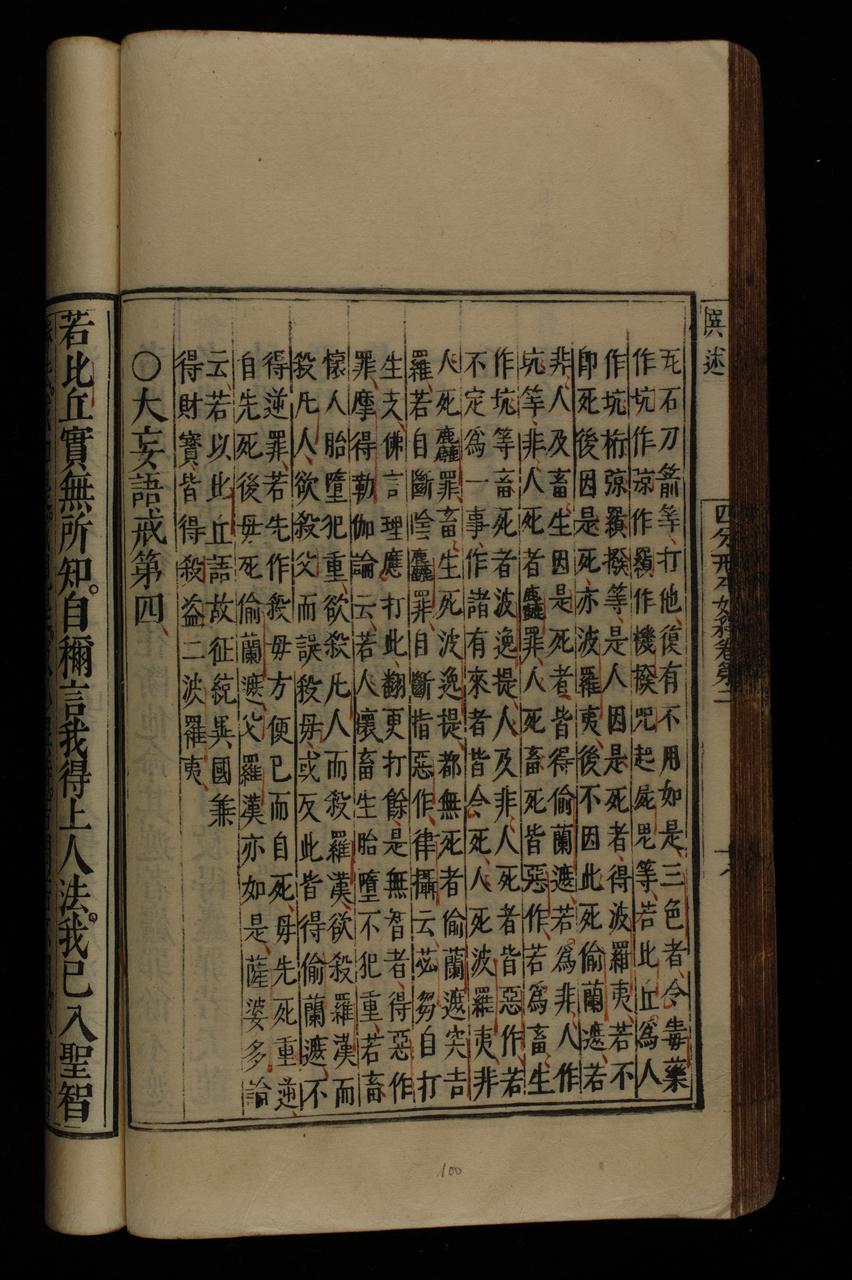 瓦石刀箭等打他復有不用如是三色者令毒藥
作坑作涼作羂作機撥呪起屍呪等若比丘為人
作坑桁弶羂撥等是人因是死者得波羅夷若不
即死後因是死亦波羅夷後不因此死偷蘭遮若
非人及畜生因是死者皆得偷蘭遮若為非人作
坑等非人死者麤罪人死畜死皆惡作若為畜生
作坑等畜死者波逸提人及非人死者皆惡作若
不定為一事作諸有來者皆令死人死波羅夷非
人死麤罪畜生死波逸提都無死者偷蘭遮突吉
羅若自斷陰麤罪自斷指惡作律攝云苾芻自打
生支佛言理應打此翻更打餘是無智者得惡作
罪摩得勒伽論云若人懷畜生胎墮不犯重若畜
懷人胎墮犯重欲殺凡人而殺羅漢欲殺羅漢而
殺凡人欲殺父而誤殺母或反此皆得偷蘭遮不
得逆罪若先作殺母方便已而自死母先死重逆
自先死後母死偷蘭遮父羅漢亦如是薩婆多論
云若以比丘語故征統異國兼
得財寶皆得殺盜二波羅夷
○大妄語戒第四
若比丘實無所知自稱言我得上人法我已入聖智